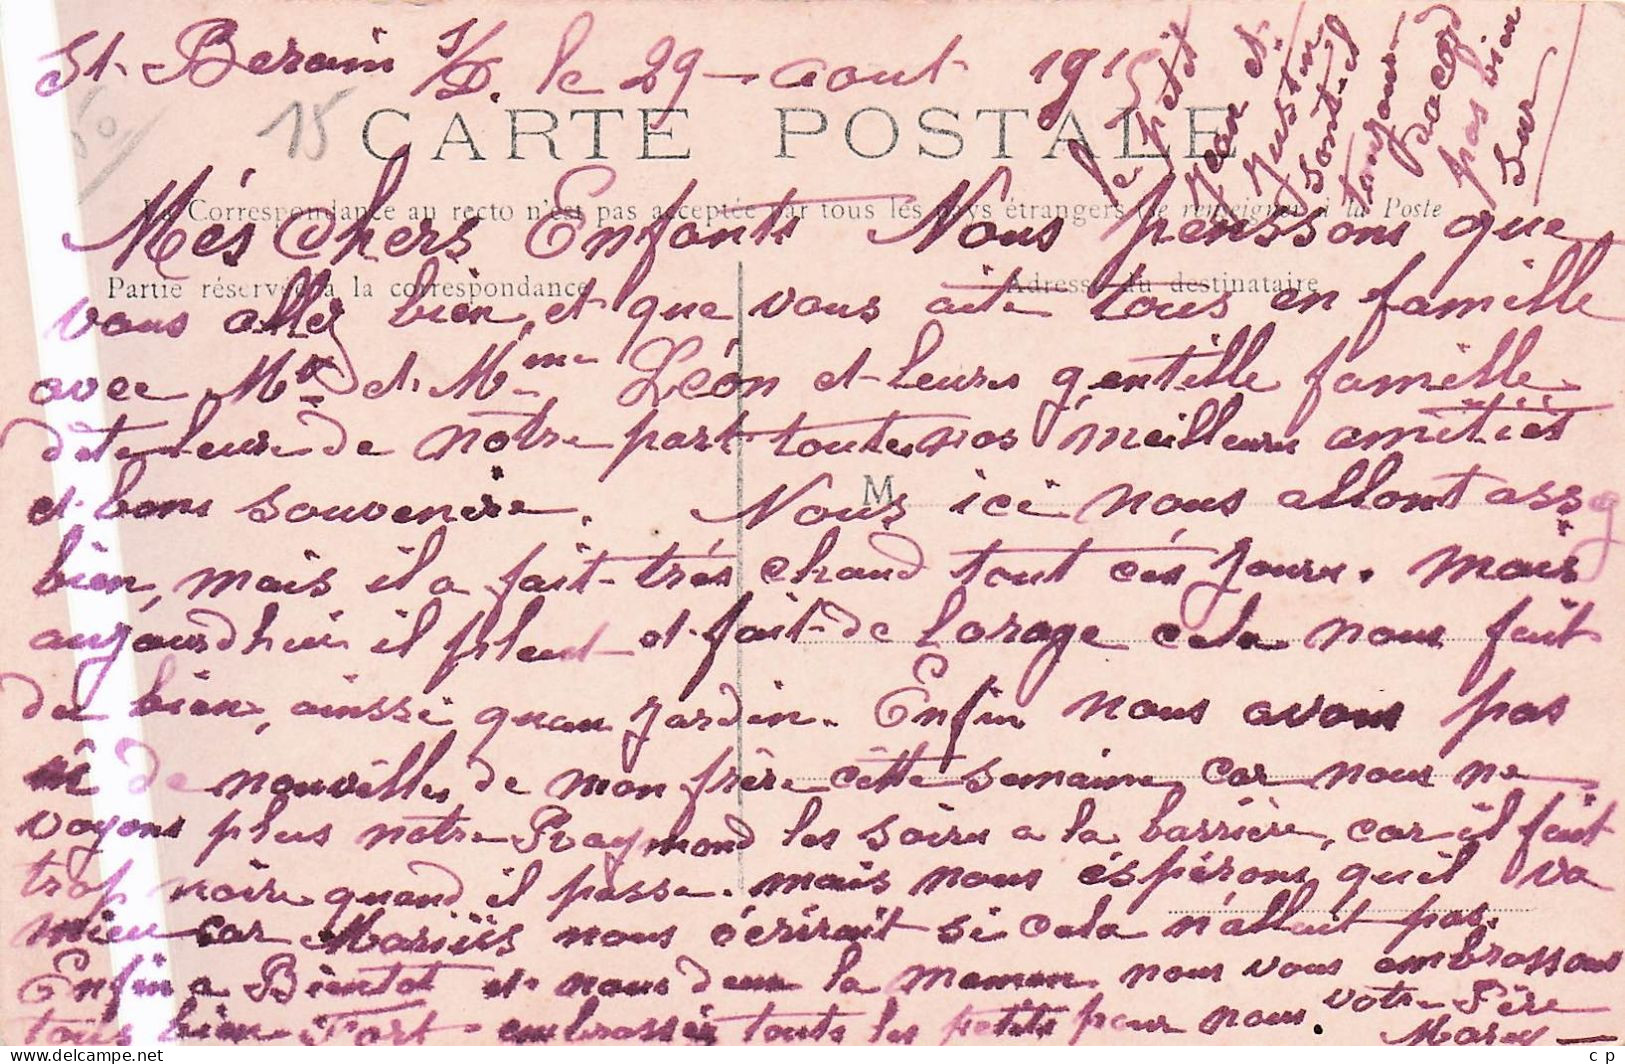 St. Berain s/D. le 29 - aout 1915
15
50
CARTE POSTALE
le petit
Jean et
Justin
sont-il
toujours
pas bien
sur
La Correspondance au recto n'est pas acceptée par tous les pays étrangers (Se renseigner à la Poste
Més Chers Enfants Nous penssons que
Partie réservée à la correspondance
Adresse du destinataire
vous allez bien, et que vous aite tous en famille
avec Mr et Mme Léon et leurs gentille famille
dite leure de notre part toute nos meilleurs amitiés
et bons souvenire. Nous ici nous allont assez
M
bien, mais il a fait très chaud tout ces jours. Mais
aujourdhui il pleut et fait de lorage cela nous fait
du bien, ainssi quau jardin. Enfin nous avons pas
de nouvilles de mon frère cette semaine car nous ne
voyons plus notre Raymond les soirs a la barrière, car il fait
trop noire quand il passe. mais nous éspérons quil va
mieu car Mariüs nous écrirait si cela n'allait pas.
Enfin a Bientot et nous deux la maman nous vous embrassons
tous bien Fort - embrasséz touts les petits pour nous. votre Père
Marey -
c p